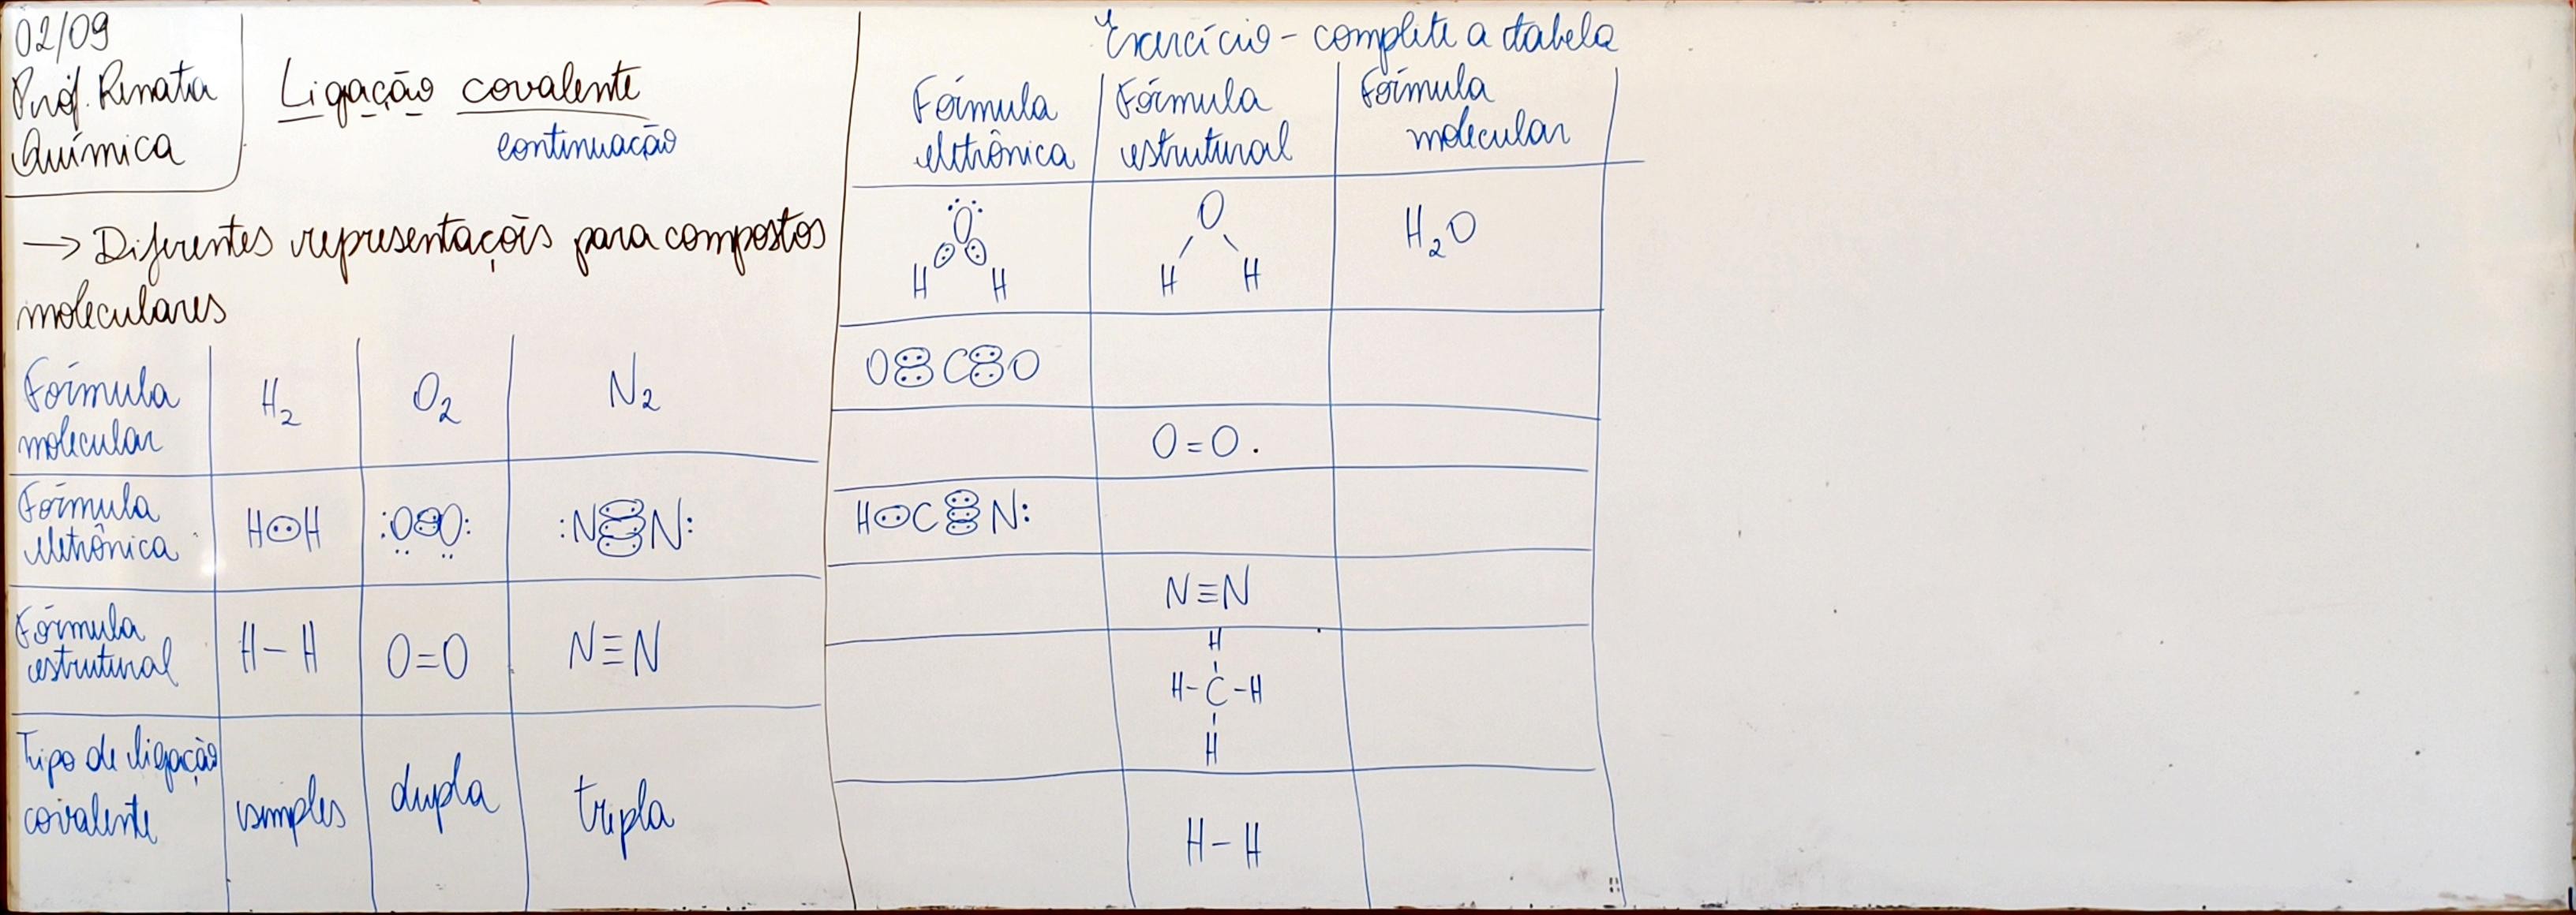 02/09
Prof. Renata
Química
Ligação covalente
continuação
→ Diferentes representações para compostos
moleculares
Fórmula molecular | H₂ | O₂ | N₂
Fórmula eletrônica | H:H | :O::O: | :N:::N:
Fórmula estrutural | H-H | O=O | N≡N
Tipo de ligação covalente | simples | dupla | tripla
Exercício - complete a tabela
Fórmula eletrônica | Fórmula estrutural | Fórmula molecular
O H H | O H H | H₂O
O::C::O
O=O.
H:C:::N:
N≡N
H
H-C-H
H
H-H